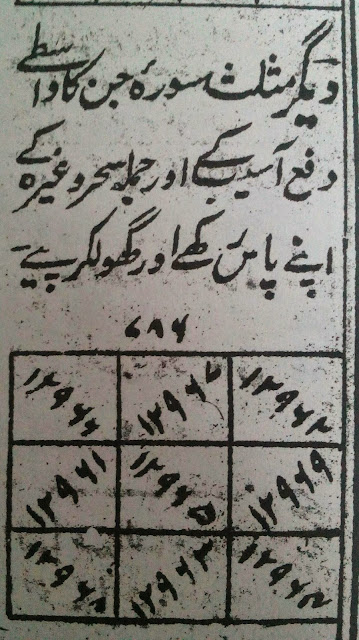 دیگر مثلث سورۂ جن کا واسطے
دفع آسیب کے اور جملہ سحر و غیرہ کے
اپنے پاس رکھے اور گھولکر پیے۔
۷۸۶
۱۲۹۶۲ ۱۲۹۶۷ ۱۲۹۶۶
۱۲۹۶۹ ۱۲۹۶۵ ۱۲۹۶۱
۱۲۹۶۴ ۱۲۹۶۳ ۱۲۹۶۸